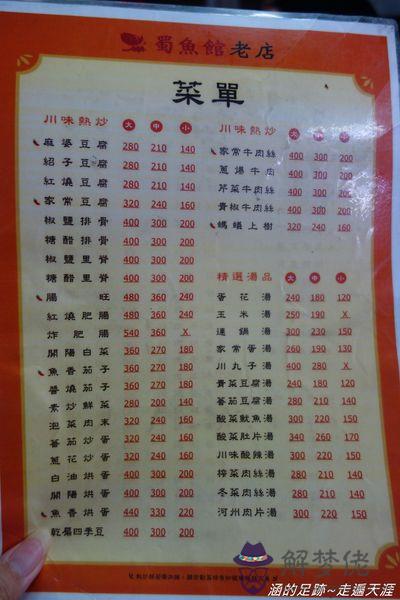 蜀魚館老店
菜單
川味熱炒 大 中 小
麻婆豆腐 280 210 140
紹子豆腐 280 210 140
紅燒豆腐 280 210 140
家常豆腐 320 240 160
椒鹽排骨 400 300 200
糖醋排骨 400 300 200
椒鹽里脊 400 300 200
糖醋里脊 400 300 200
腸旺 480 360 240
紅燒肥腸 480 360 240
炸肥腸 540 360 X
開陽白菜 360 270 180
魚香茄子 360 270 180
醬燒茄子 360 270 180
素炒鮮菜 280 210 140
泡菜肉末 320 240 160
蕃茄炒蛋 320 240 160
蔥花炒蛋 320 240 160
白油烘蛋 400 300 200
開陽烘蛋 400 300 200
魚香烘蛋 440 330 220
乾扁四季豆 400 300 200
川味熱炒 大 中 小
家常牛肉絲 400 300 200
蔥爆牛肉 400 300 200
芹菜牛肉絲 400 300 200
青椒牛肉絲 400 300 200
螞蟻上樹 320 240 160
精選湯品 大 中 小
蛋花湯 240 180 120
玉米湯 250 190 X
連鍋湯 300 230 150
家常蛋湯 260 190 130
川丸子湯 400 280 X
青菜豆腐湯 240 180 120
蕃茄豆腐湯 280 210 140
酸菜魷魚湯 300 220 150
酸菜肚片湯 340 260 170
川味酸辣湯 300 220 150
榨菜肉絲湯 280 210 140
冬菜肉絲湯 280 210 140
河州肉片湯 300 220 150
解梦佬
涵的足跡~走遍天涯